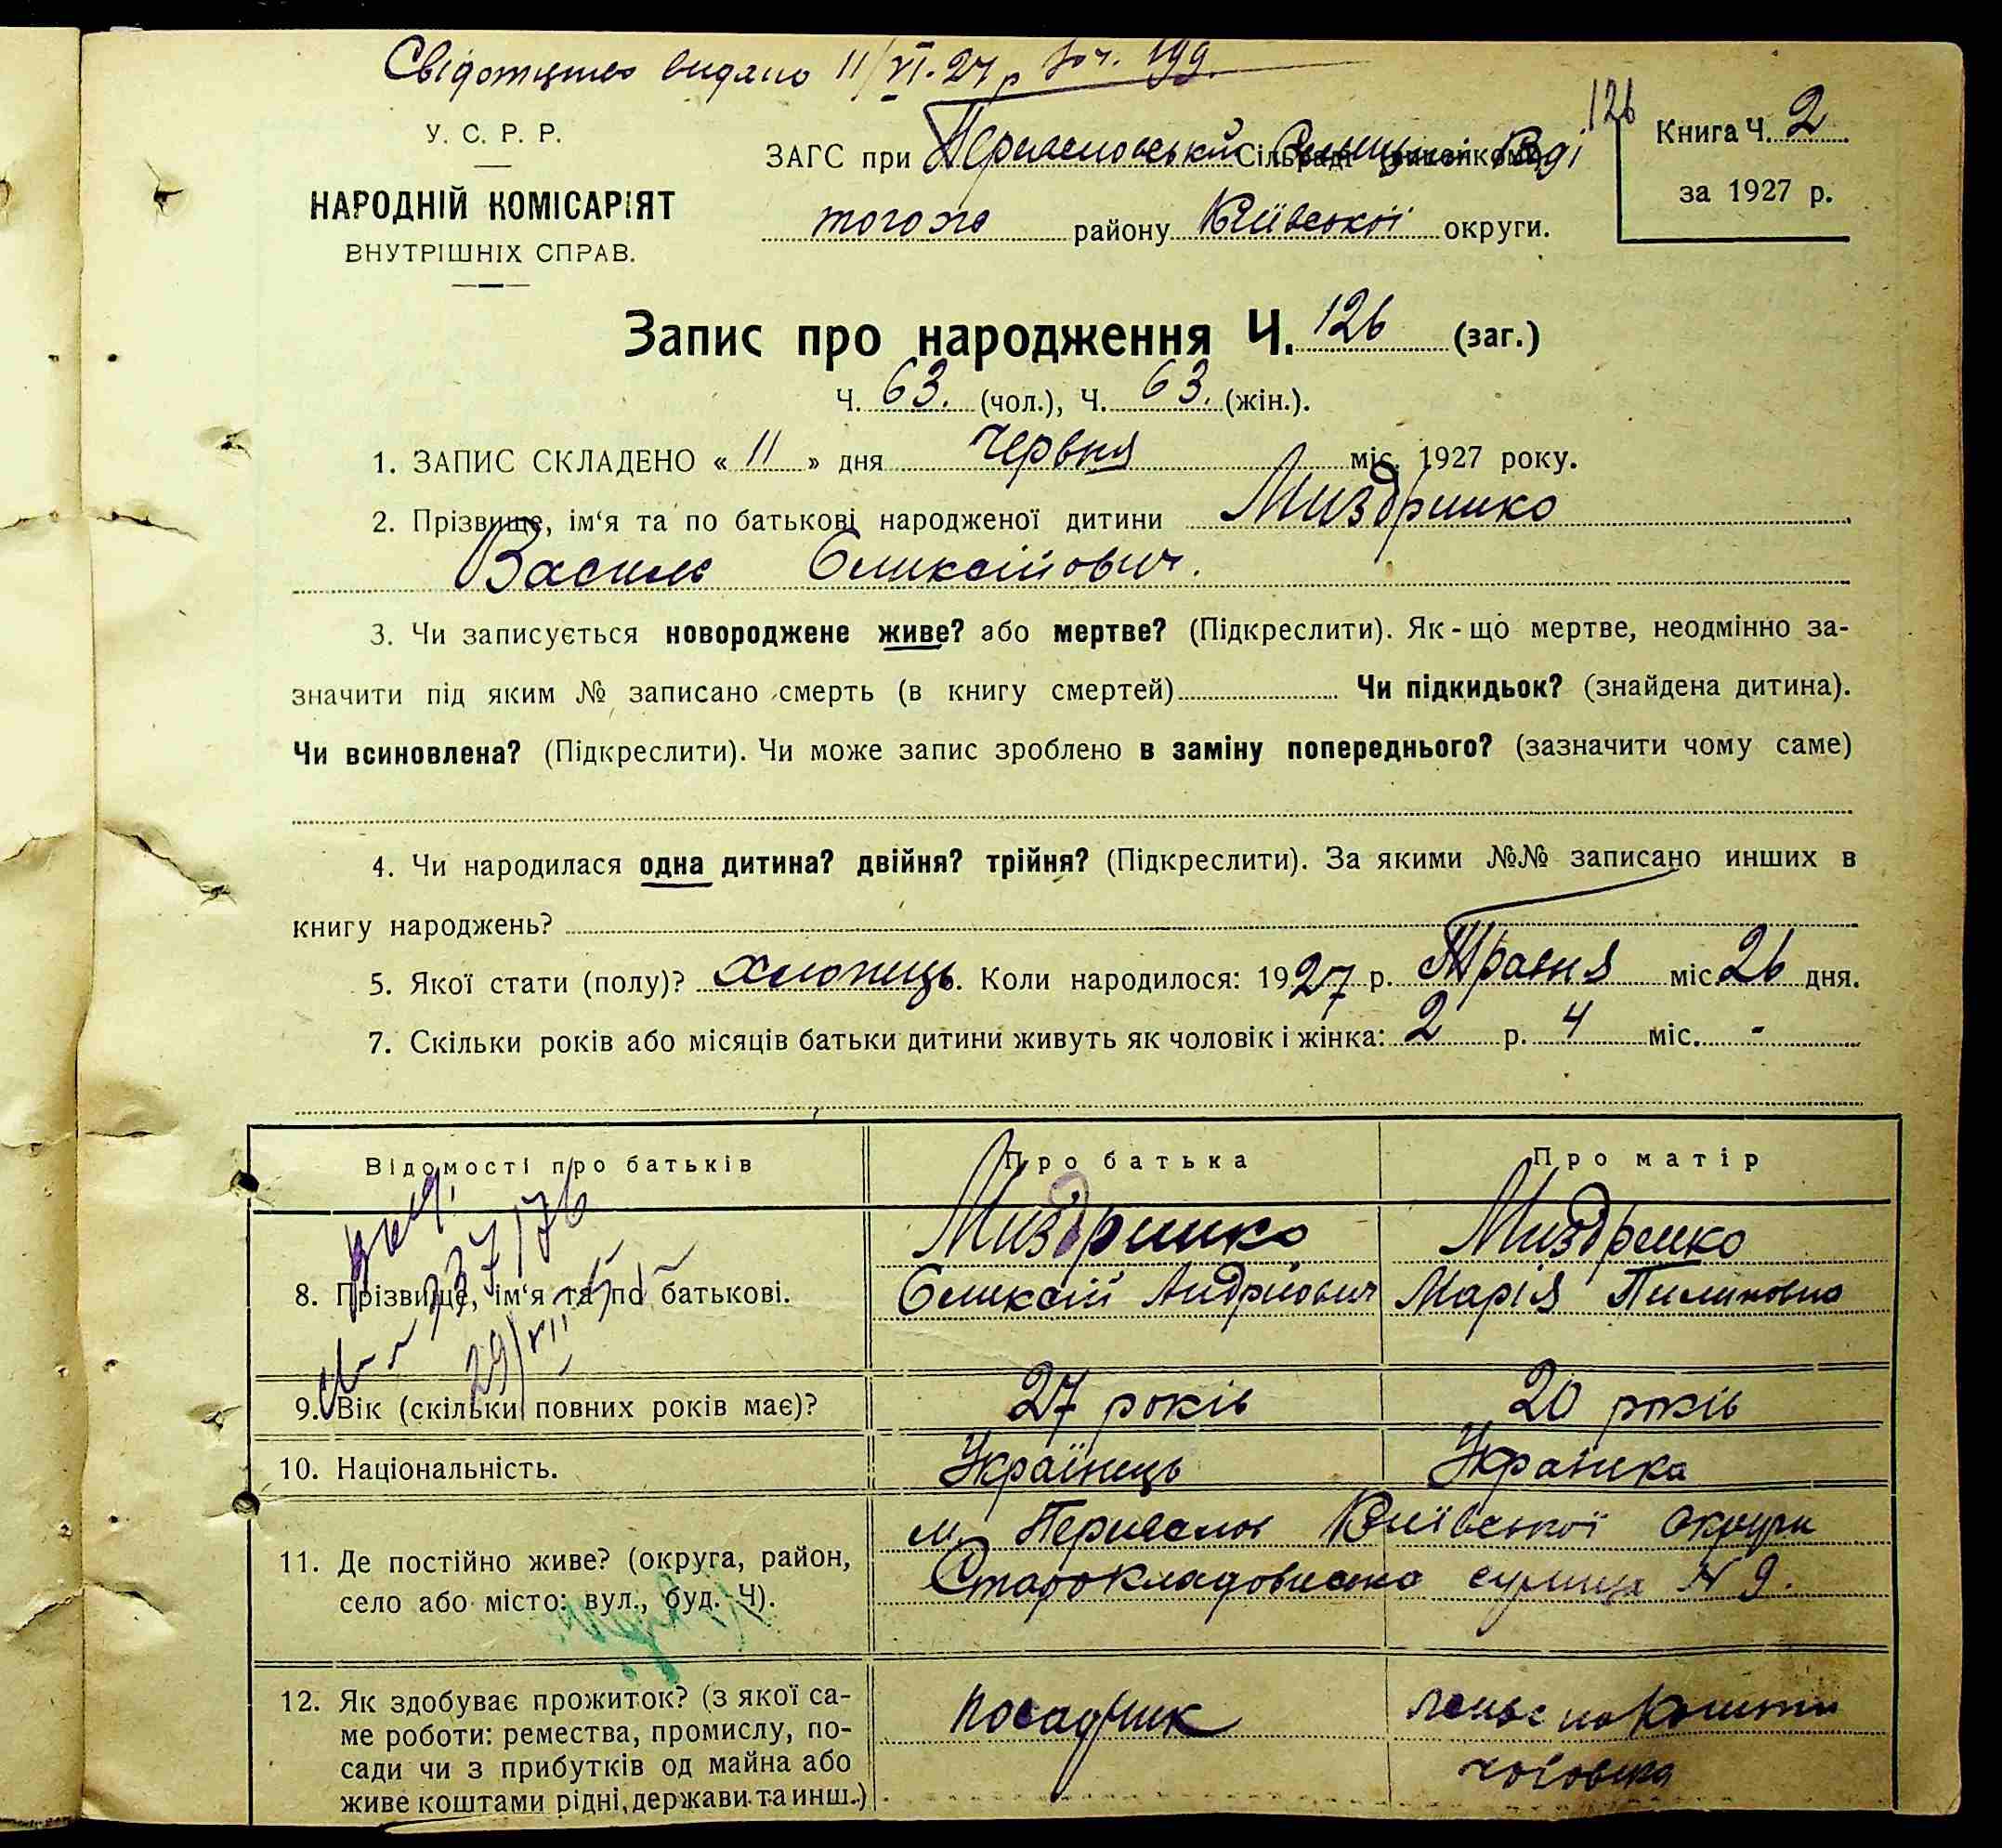 Свідотцтво видано 11/VI.27 р 199.
У. С. Р. Р.
НАРОДНІЙ КОМІСАРІЯТ
ВНУТРІШНІХ СПРАВ.
ЗАГС при Сільраді
того ж району Київської округи.
126
Книга Ч. 2
за 1927 р.
Запис про народження Ч. 126 (заг.)
Ч. 63. (чол.), Ч. 63. (жін.).
1. ЗАПИС СКЛАДЕНО « 11 » дня Червня міс. 1927 року.
2. Прізвище, ім‘я та по батькові народженої дитини Миздринко
Василь Оликсійович.
3. Чи записується новороджене живе? або мертве? (Підкреслити). Як-що мертве, неодмінно за-
значити під яким № записано смерть (в книгу смертей) Чи підкидьок? (знайдена дитина).
Чи всиновлена? (Підкреслити). Чи може запис зроблено в заміну попереднього? (зазначити чому саме)
4. Чи народилася одна дитина? двійня? трійня? (Підкреслити). За якими №№ записано инших в
книгу народжень?
5. Якої стати (полу)? Хлопиць. Коли народилося: 1927 р. Травня міс. 26 дня.
7. Скільки років або місяців батьки дитини живуть як чоловік і жінка: 2 р. 4 міс. -
Відомості про батьків Про батька Про матір
8. Прізвище, ім‘я та по батькові. Миздринко Миздринко
Оликсій Андрійович Марія Пилиповна
9. Вік (скільки повних років має)? 27 років 20 років
10. Національність. Українець Українка
11. Де постійно живе? (округа, район, м. Київської округи
село або місто: вул., буд. Ч). N 9.
12. Як здобуває прожиток? (з якої са- посадник
ме роботи: ремества, промислу, по-
сади чи з прибутків од майна або
живе коштами рідні, держави та инш.)